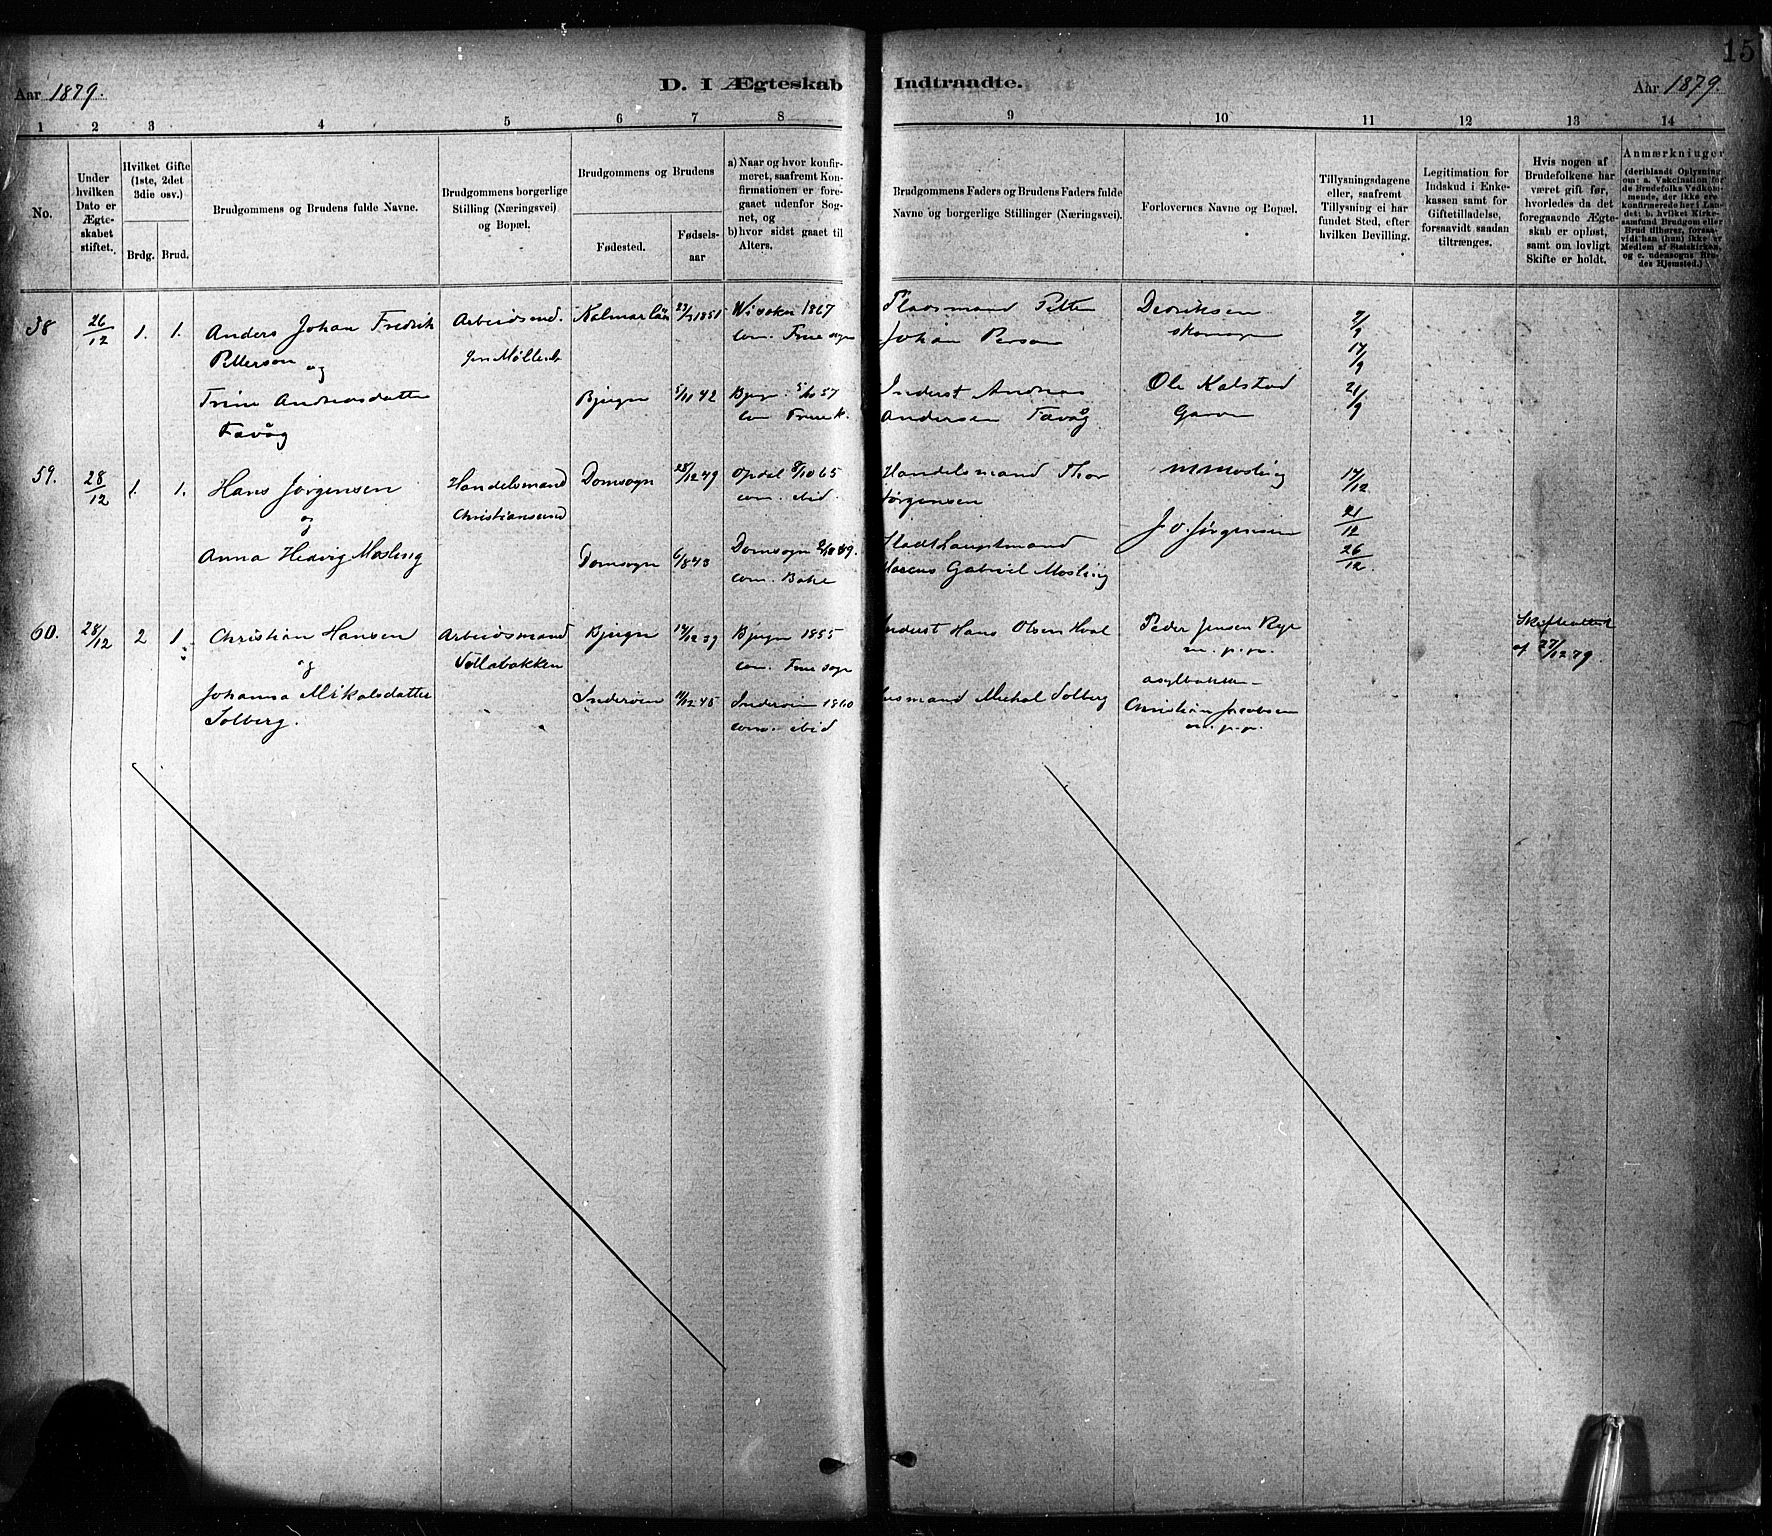 15
Aar 1879.
D. I Ægteskab Indtraadte.
Aar 1879.
1 2 3 4 5 6 7 8 9 10 11 12 13 14
No.
Under
hvilken
Dato er
Ægte-
skabet
stiftet.
Hvilket Gifte
(1ste, 2det
3die osv.)
Brdg. Brud.
Brudgommens og Brudens fulde Navne.
Brudgommens borgerlige
Stilling (Næringsvei)
og Bopæl.
Brudgommens og Brudens
Fødested.
Fødsels-
aar
a) Naar og hvor konfir-
meret, saafremt Kon-
firmationen er fore-
gaaet udenfor Sog-
net, og
b) hvor sidst gaaet til
Alters.
Brudgommens Faders og Brudens Faders fulde
Navne og borgerlige Stillinger (Næringsvei).
Forlovernes Navne og Bopæl.
Tillysningsdagene
eller, saafremt
Tillysning ei har
fundet Sted, efter
hvilken Bevilling.
Legitimation for
Indskud i Enke-
kassen samt for
Giftetilladelse,
forsaavidt saadan
tiltrænges.
Hvis nogen af
Brudefolkene har
været gift før,
hvorledes da det
foregaaende Ægte-
skab er opløst,
samt om lovligt
Skifte er holdt.
Anmærkninger
(deriblandt Oplysning
om: a. Vakcination for
de Brudefolks Vedkom-
mende, der ikke ere
konfirmerede her i Lan-
det; b. hvilket Kirke-
samfund Brudgom eller
Brud tilhører, forsaa-
vidt han (hun) ikke er
Medlem af Statskirken,
og c. udensogns Bru-
des Hjemsted.)
58 26/12 1. 1.
Anders Johan Fredrik
Petterson
og
Trine Andreasdatter
Favåg
Arbeidsmd.
Kalmarlän 1851
1867
com. Frue sogn
Bjugn 5/11 42
Bjugn 5/10 57
com Frue k.
Pladsmand Petter
Johan Person
Inderst Andreas
Andersen Favåg
Dedriksen
skomager
Ole Kalstad
7/9
14/9
21/9
59. 28/12 1. 1.
Hans Jørgensen
og
Anna Hedvig Mosling
Handelsmand
Christiansund
Domsogn 28/12 49
Opdal 8/10 65
com. ibid.
Domsogn 6/8 43
Domsogn
com. Bake
Handelsmand Thor
Jørgensen
Stadthauptmand
Marcus Gabriel Mosling
M Mosling
J O. Jørgensen
14/12
21/12
26/12
60. 28/12 2 1.
Christian Hansen
og
Johanna Mikalsdatter
Solberg.
Arbeidsmand
Vollabakken
Bjugn 14/12 39
Bjugn 1855
com. Frue sogn
Inderøen 11/12 45
Inderøen 1860
com. ibid
Inderst Hans Olsen Hval
Husmand Michal Solberg
Peder Jensen Rye
m. p. p.
asylbakken
Christian Jacobsen
m. p. p.
Skifteattest
af 27/12 79.